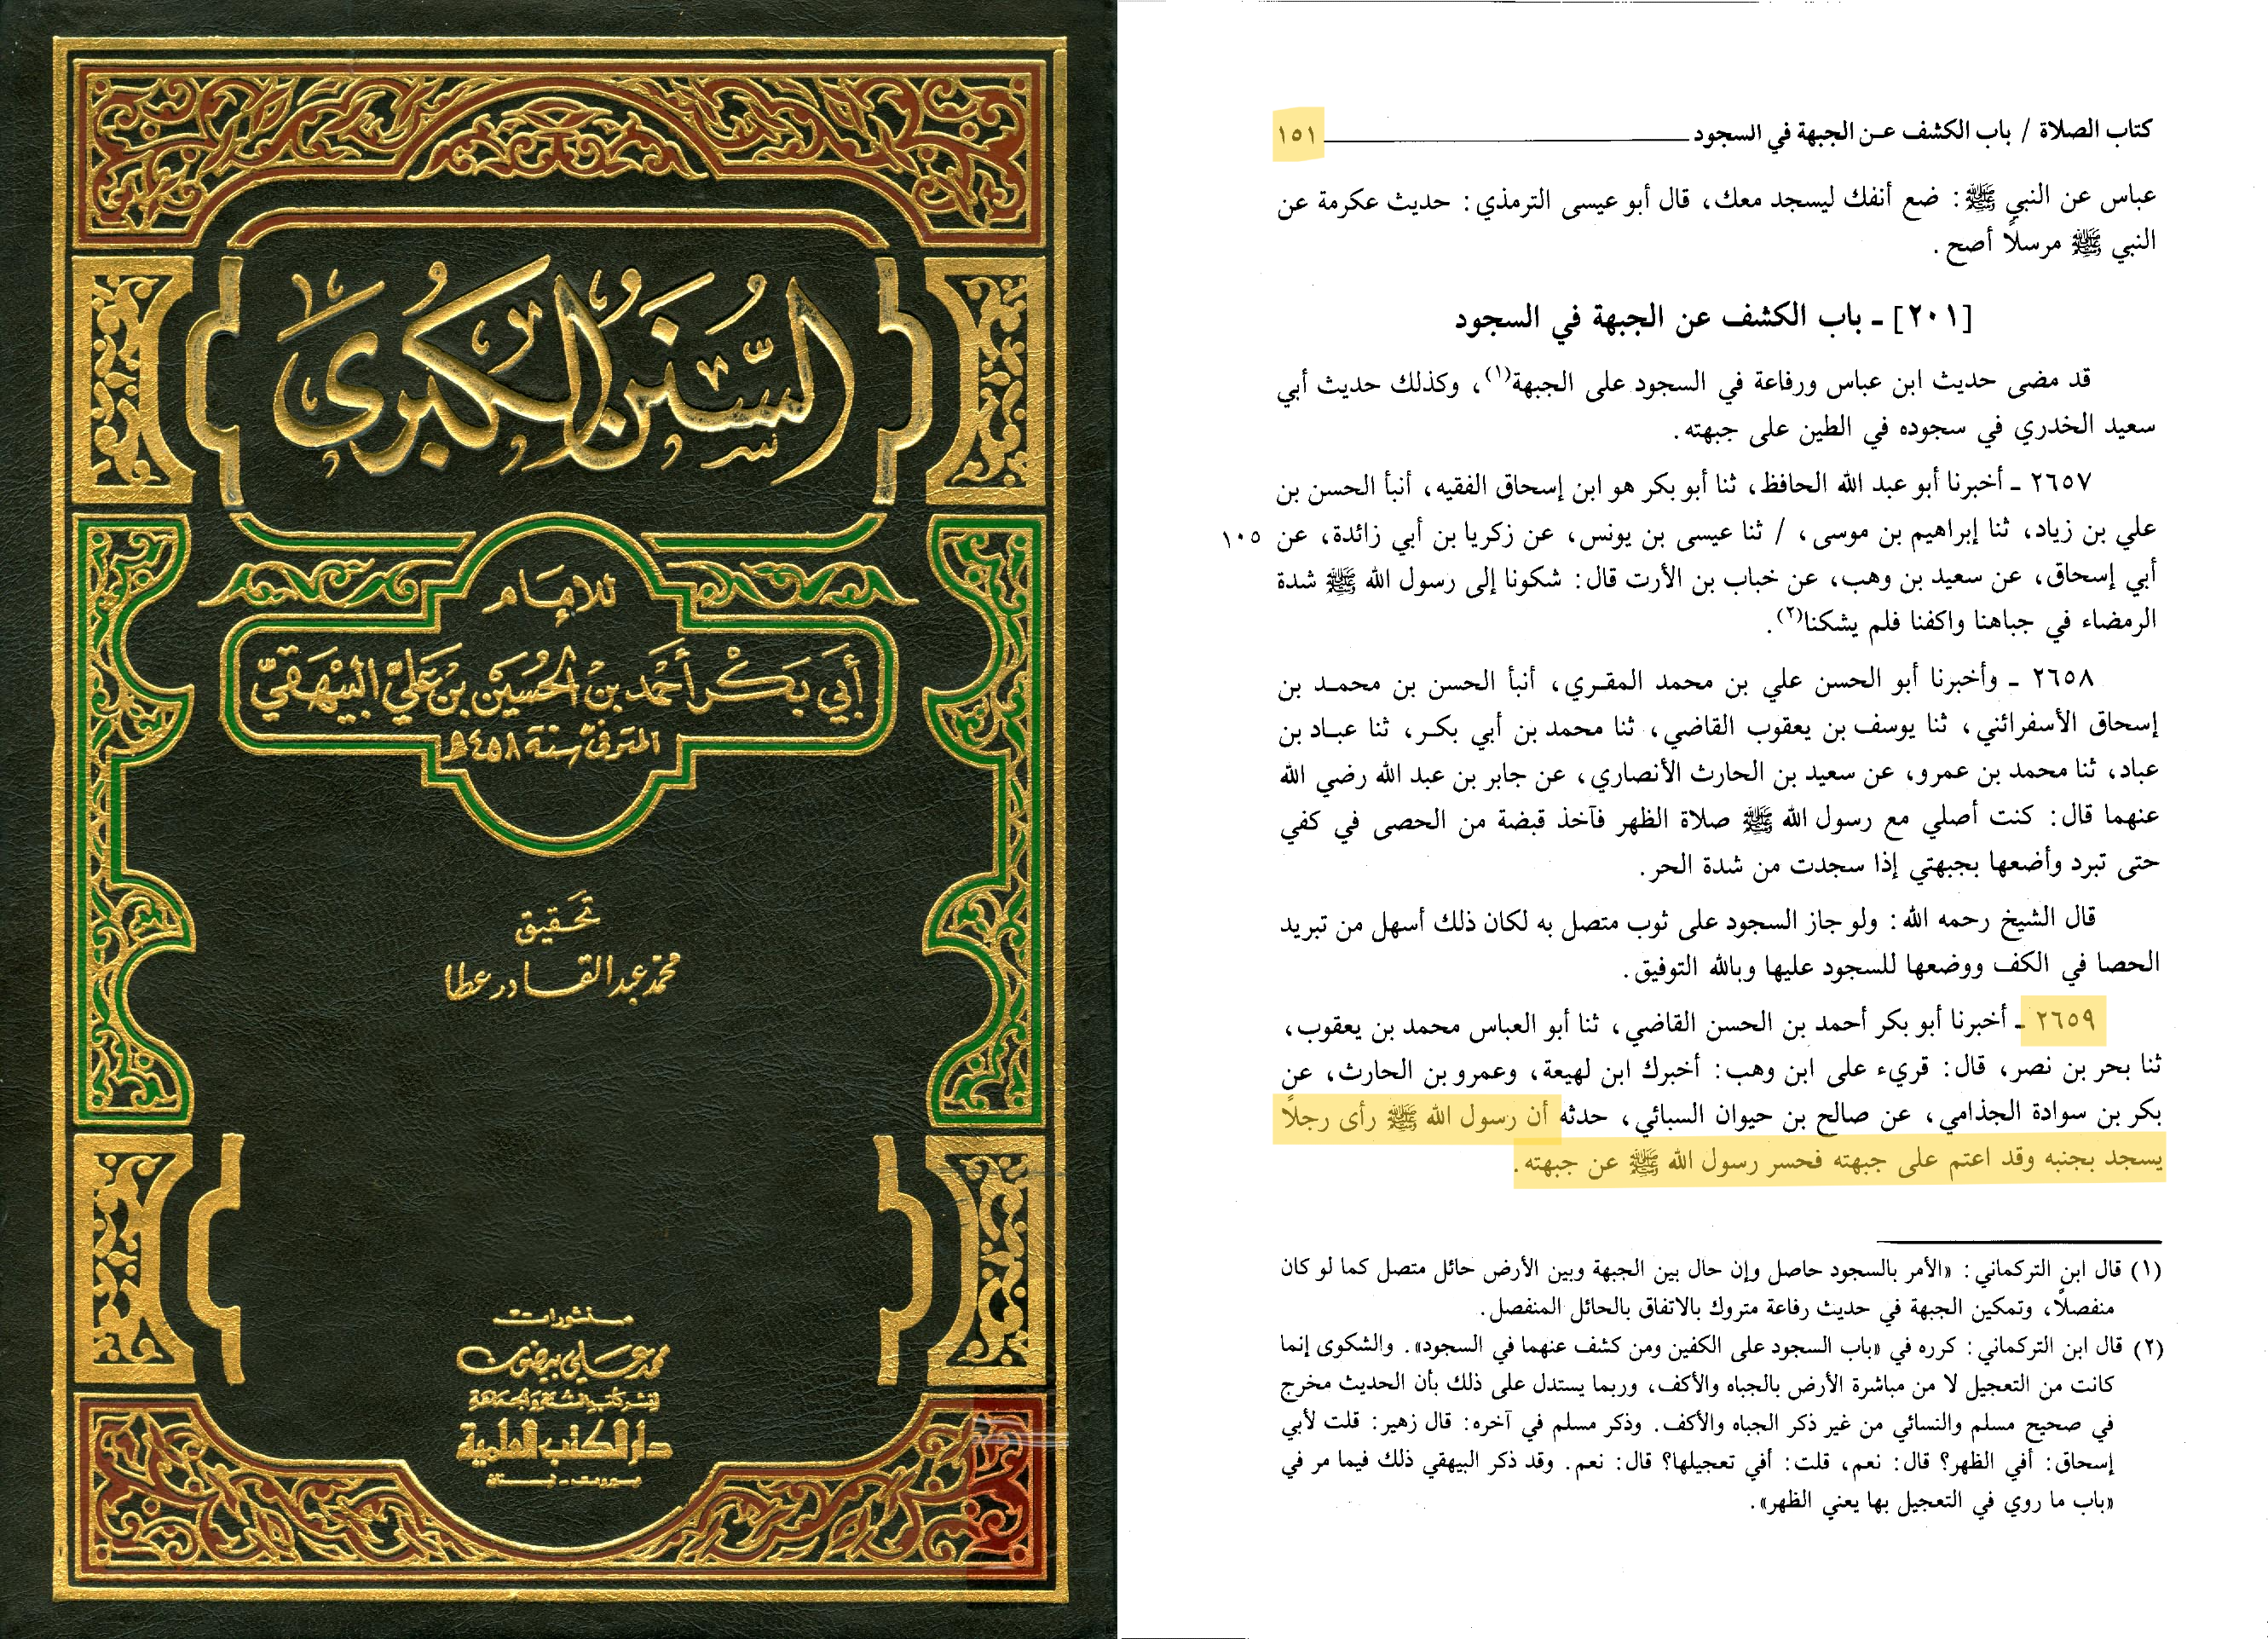 السنن الكبرى
للإمام
أبي بكر أحمد بن الحسين بن علي البيهقي
المتوفى سنة ٤٥٨ هـ
تحقيق
محمد عبد القادر عطا
منشورات
محمد علي بيضون
لنشر كتب السنة والجماعة
دار الكتب العلمية
بيروت - لبنان
كتاب الصلاة / باب الكشف عن الجبهة في السجود ١٥١
عباس عن النبي ﷺ: ضع أنفك ليسجد معك، قال أبو عيسى الترمذي: حديث عكرمة عن
النبي ﷺ مرسلًا أصح.
[٢٠١] - باب الكشف عن الجبهة في السجود
قد مضى حديث ابن عباس ورفاعة في السجود على الجبهة(١)، وكذلك حديث أبي
سعيد الخدري في سجوده في الطين على جبهته.
٢٦٥٧ - أخبرنا أبو عبد الله الحافظ، ثنا أبو بكر هو ابن إسحاق الفقيه، أنبأ الحسن بن
علي بن زياد، ثنا إبراهيم بن موسى، / ثنا عيسى بن يونس، عن زكريا بن أبي زائدة، عن ١٠٥
أبي إسحاق، عن سعيد بن وهب، عن خباب بن الأرت قال: شكونا إلى رسول الله ﷺ شدة
الرمضاء في جباهنا واكفنا فلم يشكنا(٢).
٢٦٥٨ - وأخبرنا أبو الحسن علي بن محمد المقري، أنبأ الحسن بن محمد بن
إسحاق الأسفرائني، ثنا يوسف بن يعقوب القاضي، ثنا محمد بن أبي بكر، ثنا عباد بن
عباد، ثنا محمد بن عمرو، عن سعيد بن الحارث الأنصاري، عن جابر بن عبد الله رضي الله
عنهما قال: كنت أصلي مع رسول الله ﷺ صلاة الظهر فآخذ قبضة من الحصى في كفي
حتى تبرد وأضعها بجبهتي إذا سجدت من شدة الحر.
قال الشيخ رحمه الله: ولو جاز السجود على ثوب متصل به لكان ذلك أسهل من تبريد
الحصا في الكف ووضعها للسجود عليها وبالله التوفيق.
٢٦٥٩ - أخبرنا أبو بكر أحمد بن الحسن القاضي، ثنا أبو العباس محمد بن يعقوب،
ثنا بحر بن نصر، قال: قريء على ابن وهب: أخبرك ابن لهيعة، وعمرو بن الحارث، عن
بكر بن سوادة الجذامي، عن صالح بن حيوان السبائي، حدثه أن رسول الله ﷺ رأى رجلًا
يسجد بجنبه وقد اعتم على جبهته فحسر رسول الله ﷺ عن جبهته.
(١) قال ابن التركماني: «الأمر بالسجود حاصل وإن حال بين الجبهة وبين الأرض حائل متصل كما لو كان
منفصلًا، وتمكين الجبهة في حديث رفاعة متروك بالاتفاق بالحائل المنفصل.
(٢) قال ابن التركماني: كرره في «باب السجود على الكفين ومن كشف عنهما في السجود». والشكوى إنما
كانت من التعجيل لا من مباشرة الأرض بالجباه والأكف، وربما يستدل على ذلك بأن الحديث مخرج
في صحيح مسلم والنسائي من غير ذكر الجباه والأكف. وذكر مسلم في آخره: قال زهير: قلت لأبي
إسحاق: أفي الظهر؟ قال: نعم، قلت: أفي تعجيلها؟ قال: نعم. وقد ذكر البيهقي ذلك فيما مر في
«باب ما روي في التعجيل بها يعني الظهر».